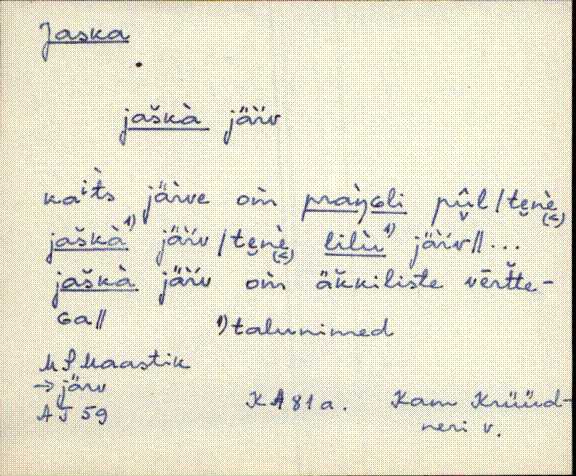 Jaska
jaškà jäŕv
kaitš järve om̀ praŋ̀ɢli pûl / tɛnɛ̀
jaškà¹⁾ jäŕv / tɛnɛ̀ lilù¹⁾ jäŕv // ...
jaškà jäŕv om̀ äkkiliste vēŕtte-
ɢa //
¹⁾ talunimed
→ järv
AJ 59
KA 81 a.
Kam Krüüd-
neri v.